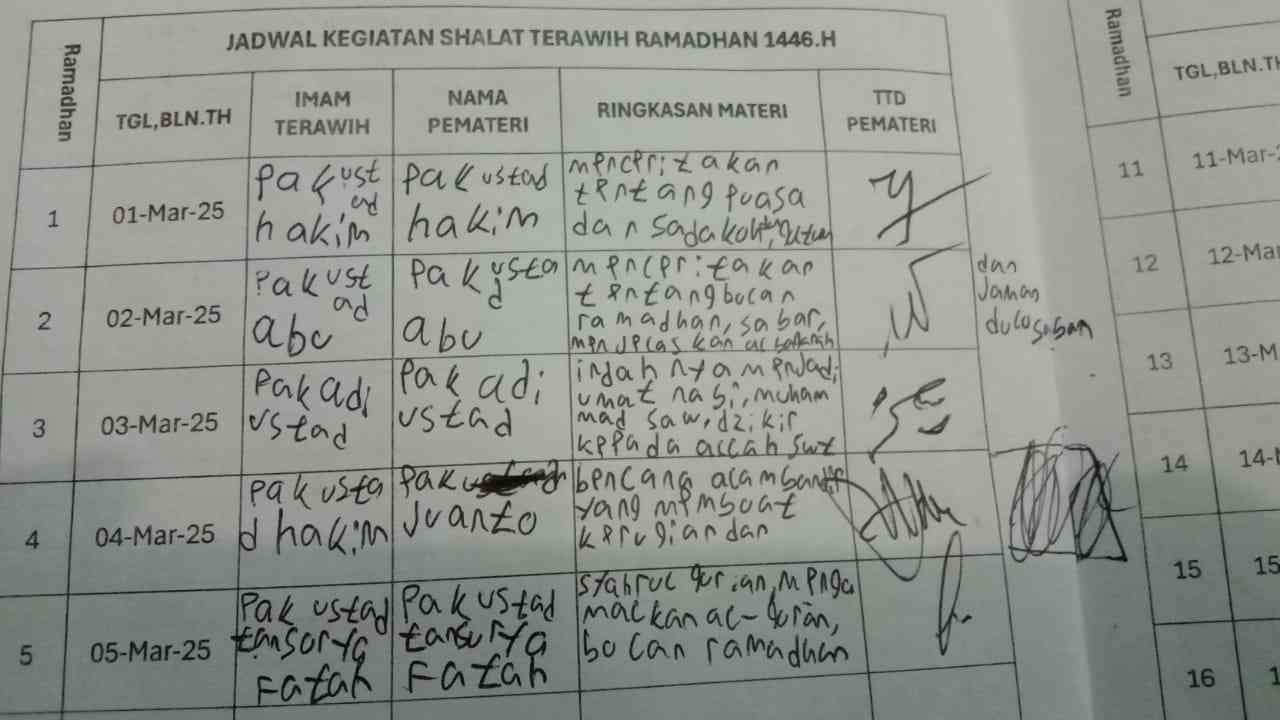 JADWAL KEGIATAN SHALAT TERAWIH RAMADHAN 1446.H
Ramadhan
TGL,BLN.TH
IMAM
TERAWIH
NAMA
PEMATERI
RINGKASAN MATERI
TTD
PEMATERI
1
01-Mar-25
Pak ust
ad
hakim
Pak ustad
hakim
menceritakan
tentang puasa
dan sadakoh,
2
02-Mar-25
Pak ust
ad
abu
Pak usta
d
abu
menceritakan
tentang bulan
ramadhan, sabar,
menjelaskan
dan
Jaman
dulu saban
3
03-Mar-25
Pak adi
ustad
Pak adi
ustad
indah nya menjadi
umat nabi, muham
mad saw, dzikir
kepada allah swt
4
04-Mar-25
Pak usta
d hakim
Pak
Juanto
bencana alam
yang membuat
kerugian dan
5
05-Mar-25
Pak ustad
tansorya
Fatah
Pak ustad
tansurya
Fatah
stahrul qur.ian, menga
malkan al-qurān,
bulan ramadhan
Ramadhan
TGL,BLN.TH
11
11-Mar-2
12
12-Ma
13
13-M
14
14-
15
15
16
1